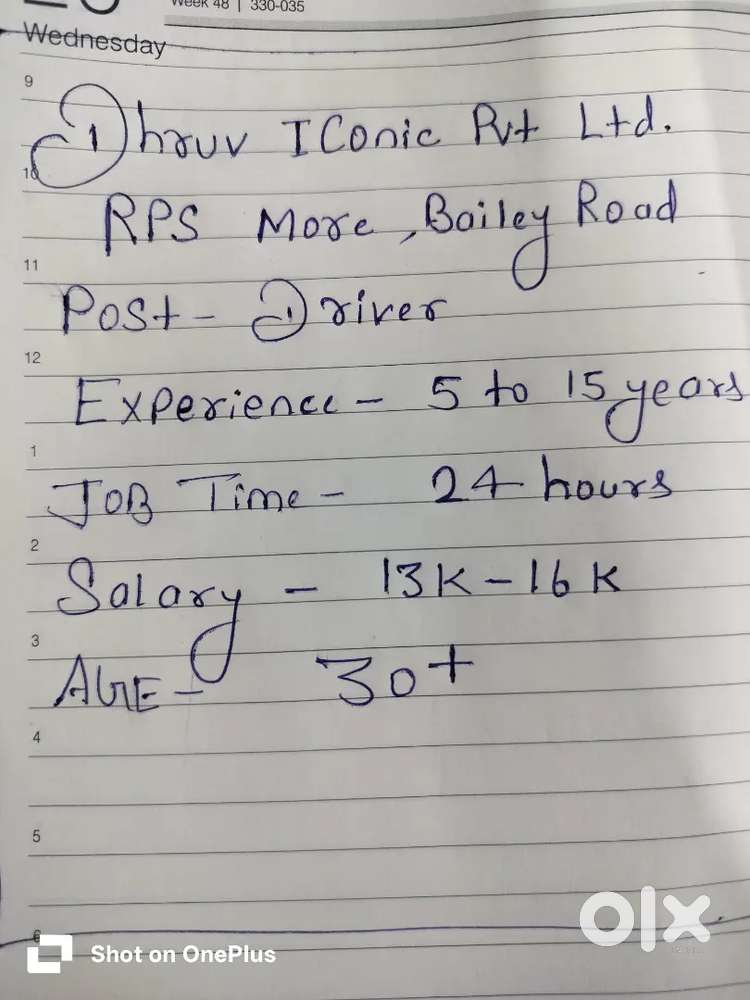 Week 48 | 330-035
Wednesday
9
Dhruv IConic Pvt Ltd.
10
RPS More, Bailey Road
11
Post - Driver
12
Experience - 5 to 15 years
1
JOB Time - 24 hours
2
Salary - 13K - 16K
3
AGE - 30+
4
5
6
Shot on OnePlus
olx